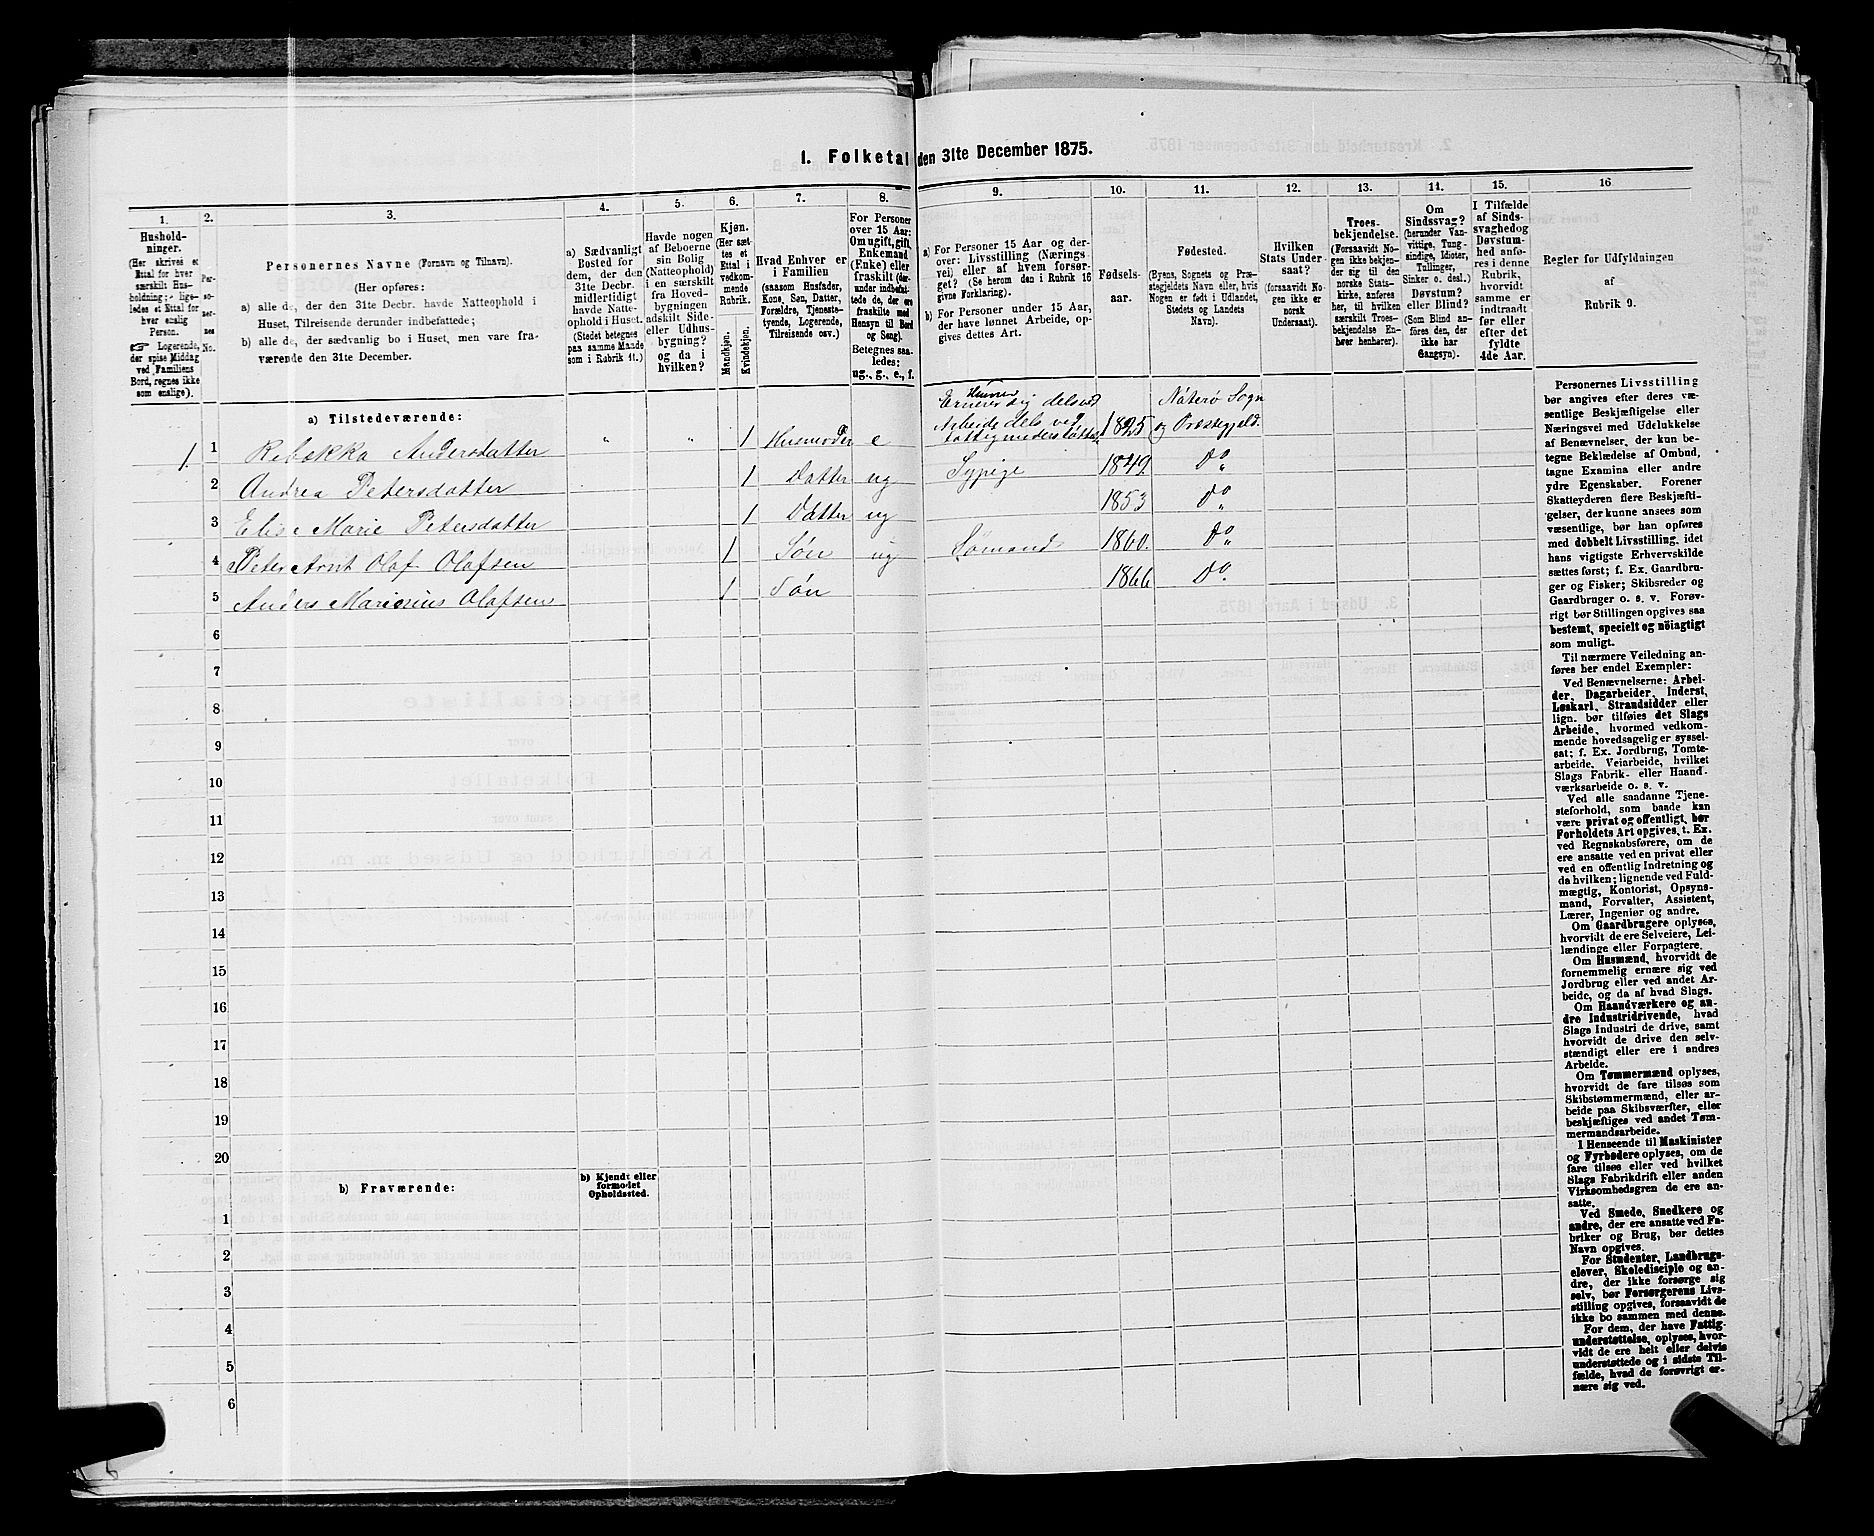 1. Folketal den 31te December 1875.
1.
2.
3.
4.
5.
6.
7.
8.
9.
10.
11.
12.
13.
14.
15.
16
Hushold-
ninger.
(Her skrives et
Ettal for hver
særskilt Hus-
holdning; lige-
ledes et Ettal for
hver enslig
Person.
☞ Logerende,
der spise Middag
ved Familiens
Bord, regnes ikke
som enslige).
Per-
so-
ner-
nes
No.
Personernes Navne (Fornavn og Tilnavn).
(Her opføres:
a) alle de, der den 31te Decbr. havde Natteophold i
Huset, Tilreisende derunder indbefattede;
b) alle de, der sædvanlig bo i Huset, men vare fra-
værende den 31te December.
a) Sædvanligt
Bosted for
dem, der den
31te Decbr.
midlertidigt
havde Natte-
ophold i Huset.
(Stedet betegnes
paa samme Maade
som i Rubrik 11.)
Havde nogen
af Beboerne
sin Bolig
(Natteophold)
i en særskilt
fra Hoved-
bygningen
adskilt Side-
eller Udhus-
bygning?
og da i
hvilken?
Kjøn.
(Her sæt-
tes et
Ettal i
vedkom-
mende
Rubrik.
Mandkjøn.
Kvindekjøn.
Hvad Enhver er
i Familien
(saasom Husfader,
Kone, Søn, Datter,
Forældre, Tjeneste-
tyende, Logerende,
Tilreisende osv.)
For Personer
over 15 Aar:
Om ugift, gift,
Enkemand
(Enke) eller
fraskilt (der-
under indbefat-
tede de, der ere
fraskilte med
Hensyn til Bord
og Seng).
Betegnes saa-
ledes:
ug., g., e., f.
a) For Personer 15 Aar og der-
over: Livsstilling (Nærings-
vei) eller af hvem forsør-
get? (Se herom den i Rubrik 16
givne Forklaring).
b) For Personer under 15 Aar,
der have lønnet Arbeide, op-
gives dettes Art.
Fødsels-
aar.
Fødested.
(Byens, Sognets og Præ-
stegjeldets Navn eller, hvis
Nogen er født i Udlandet,
Stedets og Landets
Navn).
Hvilken
Stats Under-
saat?
(forsaavidt No-
gen ikke er
norsk
Undersaat).
Troes-
bekjendelse.
(Forsaavidt No-
gen ikke bekjen-
der sig til den
norske Stats-
kirke, anføres
her, til hvilken
særskilt Troes-
bekjendelse En-
hver henhører).
Om
Sindssvag?
(herunder Van-
vittige, Tung-
sindige, Idioter,
Tullinger,
Sinker o. desl.)
Døvstum?
eller Blind?
(Som Blind an-
føres den, der
ikke har
Gangsyn).
I Tilfælde
af Sinds-
svaghed og
Døvstum-
hed anfø-
res i denne
Rubrik,
hvorvidt
samme er
indtraadt
før eller
efter det
fyldte
4de Aar.
Regler for Udfyldningen
af
Rubrik 9.
a) Tilstedeværende:
1 1 Rebekka Andersdatter " " 1 Husmoder e Ernærer sig dels ved
Arbeide dels ved 1825 Nøterø Sogn
og Præstegjeld.
2 Andrea Petersdatter 1 Datter ug Sypige 1849 Do
3 Elise Marie Petersdatter 1 Datter ug 1853 Do
4 Peter Arnt Olaf Olafsen 1 Søn ug Sømand 1860. Do
5 Anders Marinius Olafsen 1 Søn 1866 Do.
6
7
8
9
10
11
12
13
14
15
16
17
18
19
20
b) Fraværende:
b) Kjendt eller
formodet
Opholdssted.
1
2
3
4
5
6
Personernes Livsstilling
bør angives efter deres væ-
sentlige Beskjæftigelse eller
Næringsvei med Udelukkelse
af Benævnelser, der kun be-
tegne Beklædelse af Ombud,
tagne Examina eller andre
ydre Egenskaber. Forener
Skatteyderen flere Beskjæfti-
gelser, der kunne ansees som
væsentlige, bør han opføres
med dobbelt Livsstilling, idet
hans vigtigste Erhvervskilde
sættes først; f. Ex. Gaardbru-
ger og Fisker; Skibsreder og
Gaardbruger o. s. v. Forøv-
rigt bør Stillingen opgives saa
bestemt, specielt og nöiagtigt
som muligt.
Til nærmere Veiledning an-
føres her endel Exempler:
Ved Benævnelserne: Arbei-
der, Dagarbeider, Inderst,
Løskarl, Strandsidder eller
lign. bør tilføies det Slags
Arbeide, hvormed vedkom-
mende hovedsagelig er syssel-
sat; f. Ex. Jordbrug, Tomte-
arbeide, Veiarbeide, hvilket
Slags Fabrik- eller Haand-
værksarbeide o. s. v.
Ved alle saadanne Tjene-
steforhold, som baade kan
være privat og offentligt, bør
Forholdets Art opgives, t. Ex.
ved Regnskabsførere, om de
ere ansatte ved en privat eller
ved en offentlig Indretning og
da hvilken; lignende ved Fuld-
mægtig, Kontorist, Opsyns-
mand, Forvalter, Assistent,
Lærer, Ingeniør og andre.
Om Gaardbrugere oplyses,
hvorvidt de ere Selveiere, Lei-
lændinge eller Forpagtere.
Om Husmænd, hvorvidt de
fornemmelig ernære sig ved
Jordbrug eller ved andet Ar-
beide, og da af hvad Slags.
Om Haandværkere og an-
dre Industridrivende, hvad
Slags Industri de drive, samt
hvorvidt de drive den selv-
stændigt eller ere i andres
Arbeide.
Om Tømmermænd oplyses,
hvorvidt de fare tilsøs som
Skibstømmermænd, eller ar-
beide paa Skibsværfter, eller
beskjæftiges ved andet Tøm-
mermandsarbeide.
I Henseende til Maskinister
og Fyrbødere oplyses, om de
fare tilsøs eller ved hvilket
Slags Fabrikdrift eller anden
Virksomhedsgren de ere an-
satte.
Ved Smede, Snedkere og
andre, der ere ansatte ved Fa-
briker og Brug, bør dettes
Navn opgives.
For Studenter, Landbrugs-
elever, Skoledisciple og an-
dre, der ikke forsørge sig
selv, bør Forsørgerens Livs-
stilling opgives, forsaavidt de
ikke bo sammen med denne.
For dem, der have Fattig-
understøttelse, oplyses, hvor-
vidt de ere helt eller delvis
understøttede og i sidste Til-
fælde, hvad de forøvrigt er-
nære sig ved.